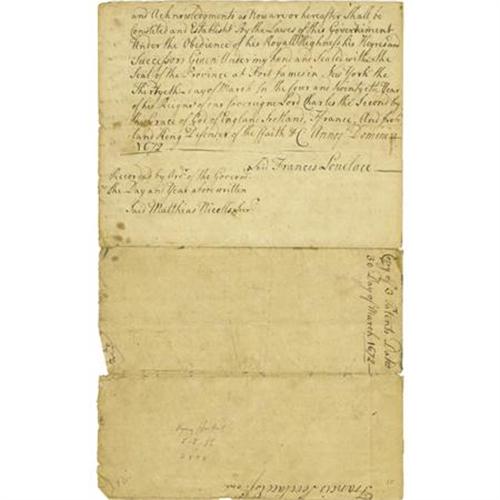 and Acknowledgments as Now are or hereafter Shall be
Constited and Establist By the Lawes of this Government
Under the Obedience of his Royall Highness his Heyres and
Successors Given Under my hand and Sealed with the
Seal of the Province at Fort James in New York the
Thirtyeth day of March In the four and Twentyeth Year
of his Reigne of our Sovereigne Lord Charles the Second by
the Grace of God of England Scotland, France, And
land King Defender of the Faith & C Annoq Domine
1672
Francis Lovelace
Recorded by Ordr of the Governor
the Day and Year above written
Matthias Nicolls Secr
Copy of 3 Patents Date
30 Day of March 1672
Francis